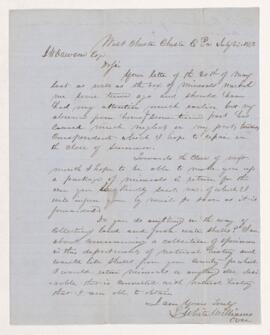 West Chester Chester Co Pa July 21 18
J W Dawson Esq
Your letter of the 20th of May
last as well as the box of Minerals reached
me some time ago and should have
had my attention much earlier but my
absence from home some time past has
caused much neglect in my
Correspondence which I hope to repair in
the close of Summer.
Towards the Close of next
month I hope to be able to make you up
a package of minerals in return for the
one you kindly sent me, of which I
will inform you by mail so soon as it is
forwarded
Do you do anything in the way of
collecting land and fresh water shells? I am
about commencing a collection of specimens
in this department of natural history and
would like shells from your country for which
I would return minerals or anything else desi
rable that is connected with natural history
that I am able to obtain
I am Yours Truly
J White Williams